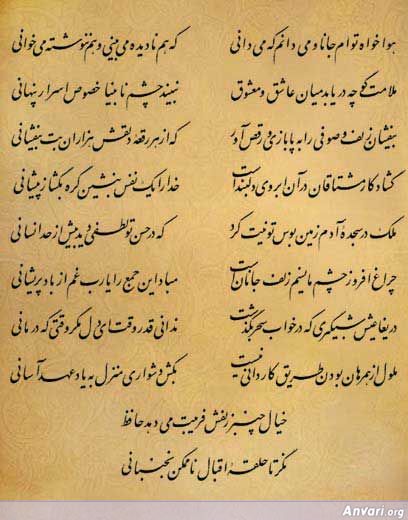 هواخواه توام جانا و می دانم که می دانی که هم نادیده می بینی و هم ننوشته می خوانی
ملامت گو چه دریابد میان عاشق و معشوق نبیند چشم نابینا خصوص اسرار پنهانی
بیفشان زلف و صوفی را به پابازی و رقص آور که از هر رقعه دلقش هزاران بت بیفشانی
گشاد کار مشتاقان در آن ابروی دلبند است خدا را یک نفس بنشین گره بگشا ز پیشانی
ملک در سجده آدم زمین بوس تو نیت کرد که در حسن تو لطفی دید بیش از حد انسانی
چراغ افروز چشم ما نسیم زلف جانان است مباد این جمع را یارب غم از باد پریشانی
دریغا عیش شبگیری که در خواب سحر بگذشت ندانی قدر وقت ای دل مگر وقتی که درمانی
ملول از همرهان بودن طریق کاردانی نیست بکش دشواری منزل به یاد عهد آسانی
خیال چنبر زلفش فریبت می دهد حافظ
نگر تا حلقهٔ اقبال ناممکن نجنبانی
Anvari.org